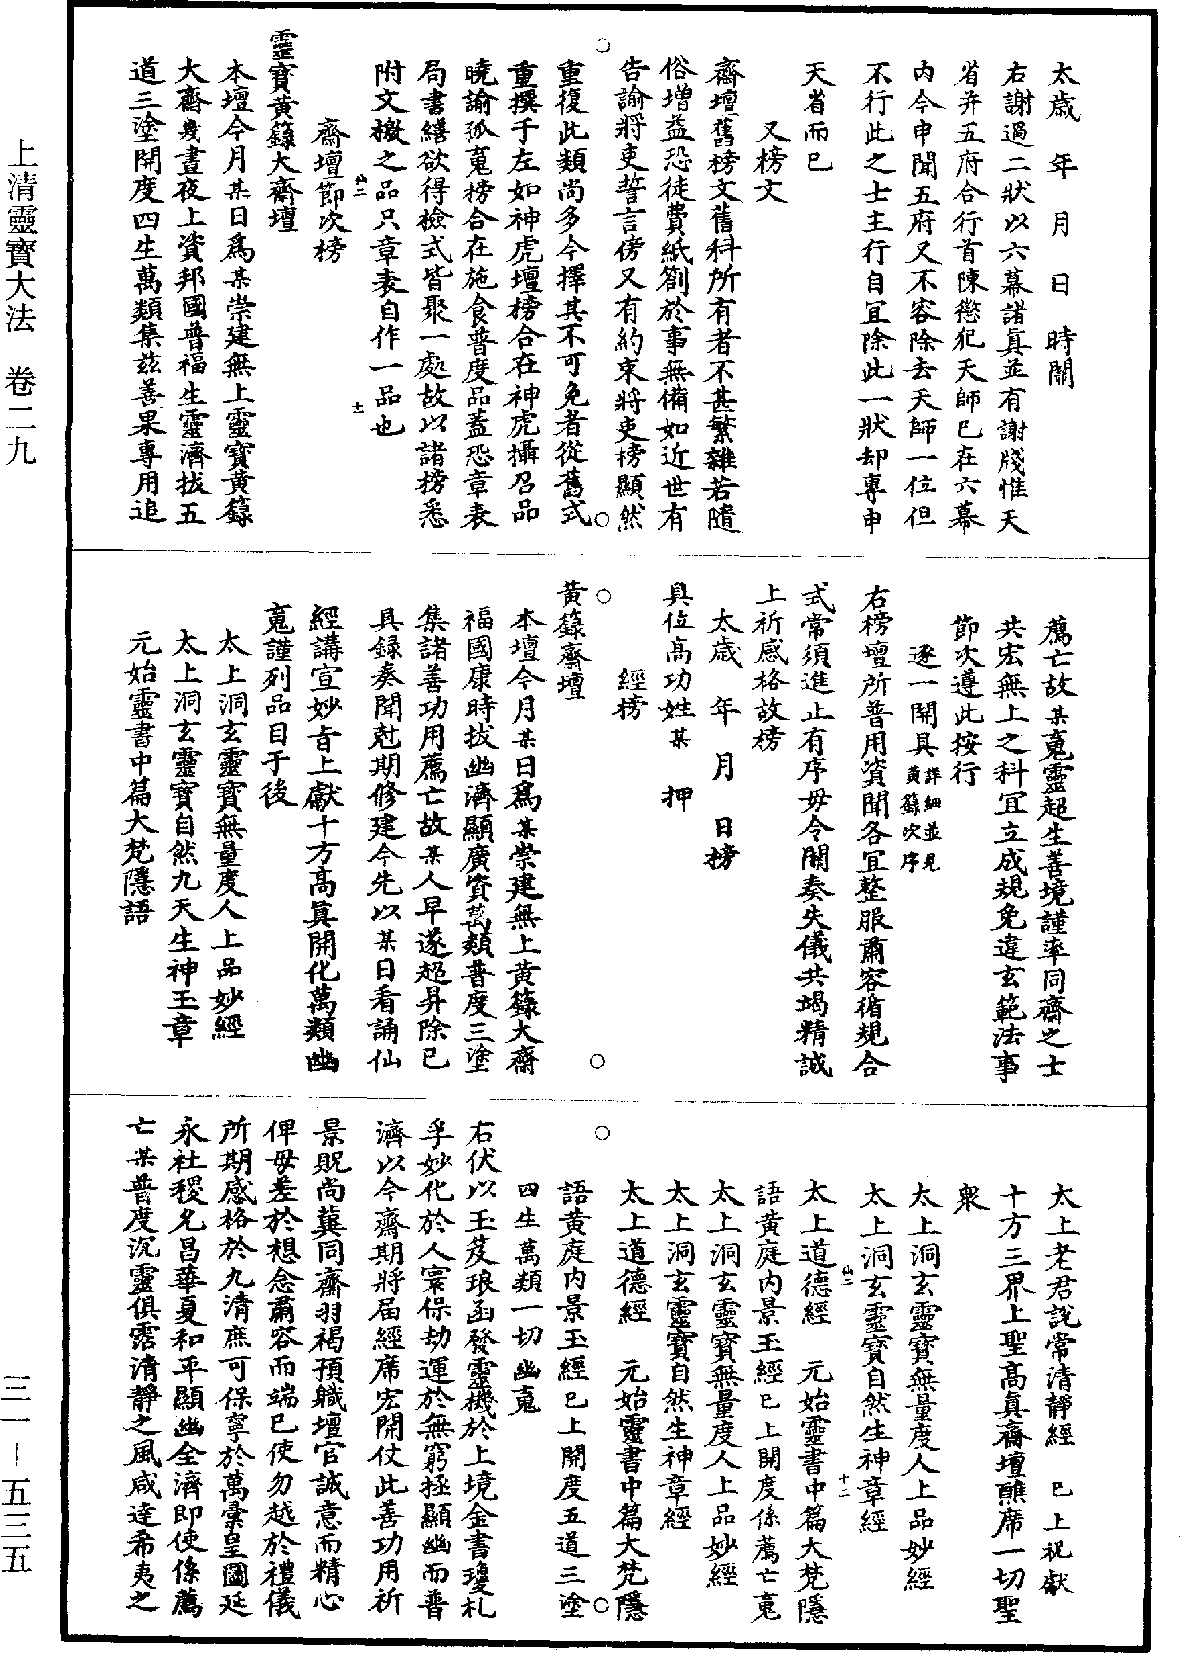 上清靈寶大法　卷二九
三一－五三五
太歲　年　月　日　時關
右謝過二狀以六幕諸眞並有謝牋惟天
省并五府合行首陳愆犯天師已在六幕
內今申聞五府又不容除去天師一位但
不行此之士主行自宜除此一狀却專申
天省而已
又榜文
齋壇舊榜文舊科所有者不甚繁雜若隨
俗增益恐徒費紙劄於事無備如近世有
告諭將吏誓言傍又有約束將吏榜顯然
重復此類尚多今擇其不可免者從舊式
重撰于左如神虎壇榜合在神虎攝召品
曉諭孤䰟榜合在施食普度品蓋恐章表
局書繕欲得檢式皆聚一處故以諸榜悉
附文檄之品只章表自作一品也
仙二
十一
齋壇節次榜
靈寶黃籙大齋壇
本壇今月某日爲某崇建無上靈寶黃籙
大齋幾晝夜上資邦國普福生靈濟拔五
道三塗開度四生萬類集茲善果專用追
薦亡故某䰟靈超生善境謹率同齋之士
共宏無上之科宜立成規免違玄範法事
節次遵此按行
逐一開具詳細並見黃籙次序
右榜壇所普用資聞各宜整服肅容循規合
式常須進止有序毋令關奏失儀共竭精誠
上祈感格故榜
太歲　年　月　日榜
具位高功姓某　押
經榜
黃籙齋壇
本壇今月某日爲某崇建無上黃籙大齋
福國康時拔幽濟顯廣資萬類普度三塗
集諸善功用薦亡故某人早遂超昇除已
具錄奏聞尅期修建今先以某日看誦仙
經講宣妙旨上獻十方高眞開化萬類幽
䰟謹列品目于後
太上洞玄靈寶無量度人上品妙經
太上洞玄靈寶自然九天生神玉章
元始靈書中篇大梵隱語
太上老君說常清靜經　已上祝獻
十方三界上聖高眞齋壇醮席一切聖
衆
太上洞玄靈寶無量度人上品妙經
太上洞玄靈寶自然生神章經
仙二
十二
太上道德經　元始靈書中篇大梵隱
語黃庭內景玉經已上開度係薦亡䰟
太上洞玄靈寶無量度人上品妙經
太上洞玄靈寶自然生神章經
太上道德經　元始靈書中篇大梵隱
語黃庭內景玉經已上開度五道三塗
四生萬類一切幽䰟
右伏以玉笈琅函發靈機於上境金書瓊札
孚妙化於人寰保劫運於無窮拯顯幽而普
濟以今齋期將屆經席宏開仗此善功用祈
景貺尚冀同齋羽褐預職壇官誠意而精心
俾毋差於想念肅容而端已使勿越於禮儀
所期感格於九清庶可保寧於萬彙皇圖廷
永社稷允昌華夏和平顯幽全濟即使係薦
亡某普度沉靈俱霑清靜之風咸達希夷之